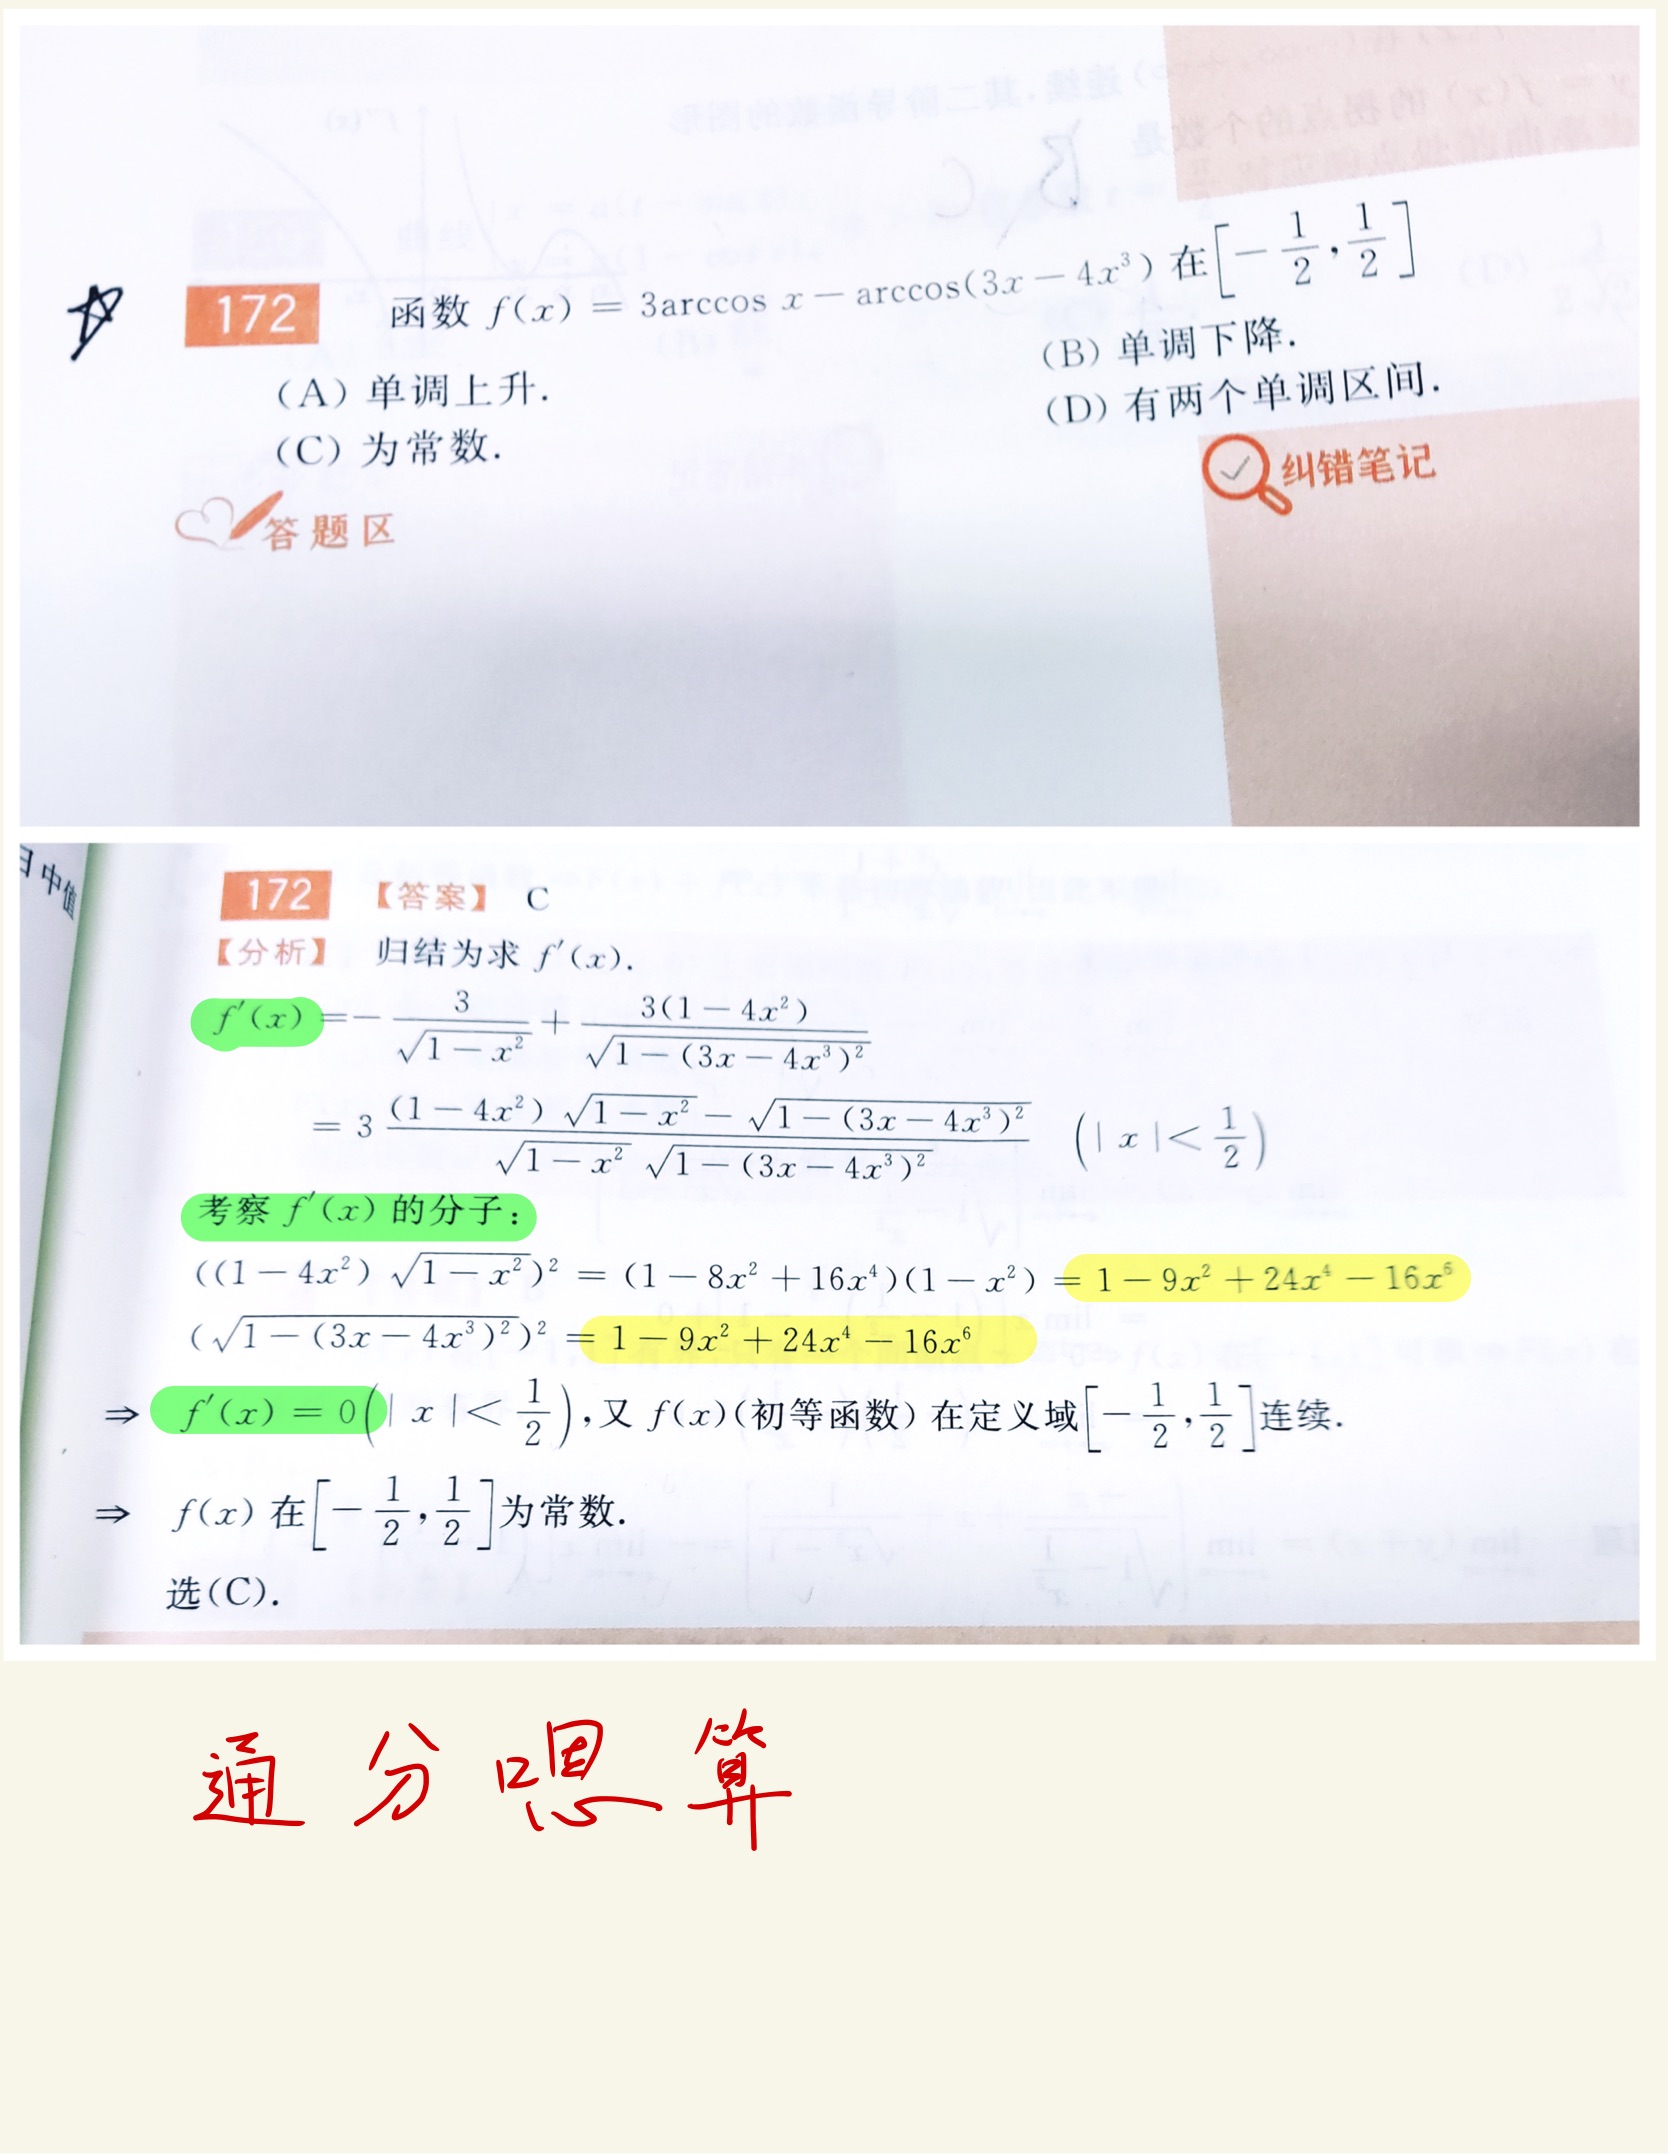 172 函数 f(x) = 3arccos x − arccos(3x − 4x³) 在[−1/2, 1/2]
(A) 单调上升. (B) 单调下降.
(C) 为常数. (D) 有两个单调区间.
答题区 纠错笔记
172 【答案】 C
【分析】 归结为求 f′(x).
f′(x) = − 3/√(1 − x²) + 3(1 − 4x²)/√(1 − (3x − 4x³)²)
= 3 ((1 − 4x²) √(1 − x²) − √(1 − (3x − 4x³)²))/(√(1 − x²) √(1 − (3x − 4x³)²)) (| x | < 1/2)
考察 f′(x) 的分子:
((1 − 4x²) √(1 − x²))² = (1 − 8x² + 16x⁴)(1 − x²) = 1 − 9x² + 24x⁴ − 16x⁶
(√(1 − (3x − 4x³)²))² = 1 − 9x² + 24x⁴ − 16x⁶
⇒ f′(x) = 0 (| x | < 1/2), 又 f(x)(初等函数) 在定义域[−1/2, 1/2]连续.
⇒ f(x) 在[−1/2, 1/2]为常数.
选(C).
通分嗯算